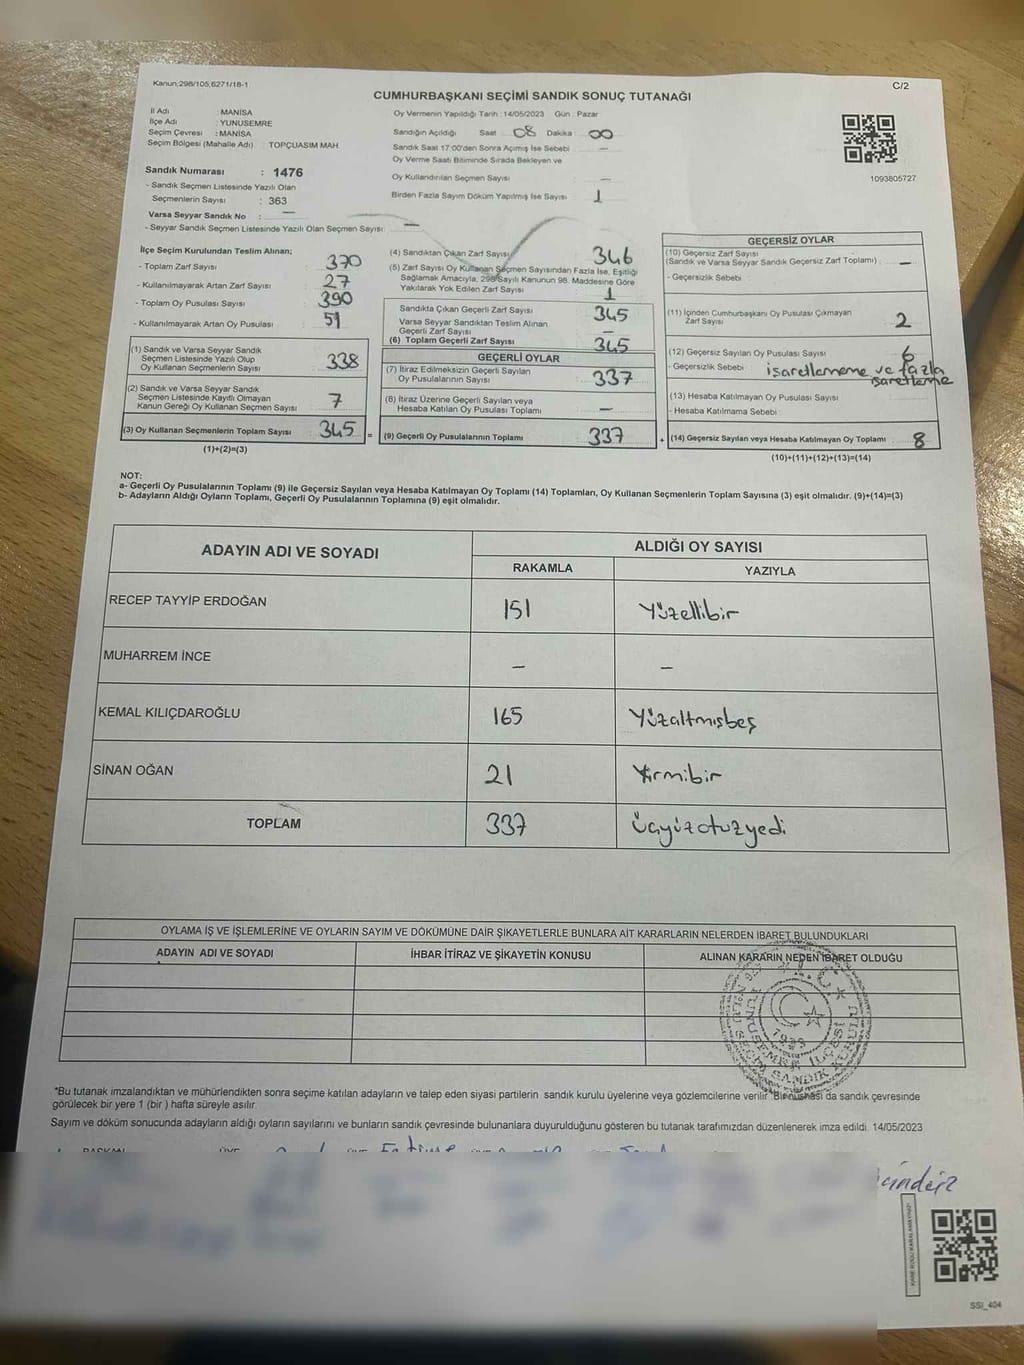 Kanun;298/105;6271/18-1
C/2
CUMHURBAŞKANI SEÇİMİ SANDIK SONUÇ TUTANAĞI
İl Adı : MANİSA
İlçe Adı : YUNUSEMRE
Seçim Çevresi : MANİSA
Seçim Bölgesi (Mahalle Adı) : TOPÇUASIM MAH.
Sandık Numarası : 1476
- Sandık Seçmen Listesinde Yazılı Olan
Seçmenlerin Sayısı : 363
Varsa Seyyar Sandık No : —
- Seyyar Sandık Seçmen Listesinde Yazılı Olan Seçmen Sayısı: —
Oy Vermenin Yapıldığı Tarih :14/05/2023 Gün : Pazar
Sandığın Açıldığı Saat 08 Dakika : 00
Sandık Saat 17:00'den Sonra Açımış İse Sebebi —
Oy Verme Saati Bitiminde Sırada Bekleyen ve
Oy Kullandırılan Seçmen Sayısı —
Birden Fazla Sayım Döküm Yapılmış İse Sayısı 1
1093805727
İlçe Seçim Kurulundan Teslim Alınan;
- Toplam Zarf Sayısı 370
- Kullanılmayarak Artan Zarf Sayısı 27
- Toplam Oy Pusulası Sayısı 390
- Kullanılmayarak Artan Oy Pusulası 51
(1) Sandık ve Varsa Seyyar Sandık
Seçmen Listesinde Yazılı Olup
Oy Kullanan Seçmenlerin Sayısı 338
(2) Sandık ve Varsa Seyyar Sandık
Seçmen Listesinde Kayıtlı Olmayan
Kanun Gereği Oy Kullanan Seçmen Sayısı 7
(3) Oy Kullanan Seçmenlerin Toplam Sayısı 345 =
(1)+(2)=(3)
(4) Sandıktan Çıkan Zarf Sayısı 346
(5) Zarf Sayısı Oy Kullanan Seçmen Sayısından Fazla İse, Eşitliği
Sağlamak Amacıyla, 298 Sayılı Kanunun 98. Maddesine Göre
Yakılarak Yok Edilen Zarf Sayısı 1
Sandıkta Çıkan Geçerli Zarf Sayısı 345
Varsa Seyyar Sandıktan Teslim Alınan
Geçerli Zarf Sayısı —
(6) Toplam Geçerli Zarf Sayısı 345
GEÇERLİ OYLAR
(7) İtiraz Edilmeksizin Geçerli Sayılan
Oy Pusulalarının Sayısı 337
(8) İtiraz Üzerine Geçerli Sayılan veya
Hesaba Katılan Oy Pusulası Toplamı —
(9) Geçerli Oy Pusulalarının Toplamı 337 +
GEÇERSİZ OYLAR
(10) Geçersiz Zarf Sayısı
(Sandık ve Varsa Seyyar Sandık Geçersiz Zarf Toplamı) —
- Geçersizlik Sebebi :
(11) İçinden Cumhurbaşkanı Oy Pusulası Çıkmayan
Zarf Sayısı 2
(12) Geçersiz Sayılan Oy Pusulası Sayısı 6
- Geçersizlik Sebebi işaretlememe ve fazla
işaretleme
(13) Hesaba Katılmayan Oy Pusulası Sayısı
- Hesaba Katılmama Sebebi :
(14) Geçersiz Sayılan veya Hesaba Katılmayan Oy Toplamı 8
(10)+(11)+(12)+(13)=(14)
NOT:
a- Geçerli Oy Pusulalarının Toplamı (9) ile Geçersiz Sayılan veya Hesaba Katılmayan Oy Toplamı (14) Toplamları, Oy Kullanan Seçmenlerin Toplam Sayısına (3) eşit olmalıdır. (9)+(14)=(3)
b- Adayların Aldığı Oyların Toplamı, Geçerli Oy Pusulalarının Toplamına (9) eşit olmalıdır.
ADAYIN ADI VE SOYADI ALDIĞI OY SAYISI
RAKAMLA YAZIYLA
RECEP TAYYİP ERDOĞAN 151 Yüzellibir
MUHARREM İNCE — —
KEMAL KILIÇDAROĞLU 165 Yüzaltmışbeş
SİNAN OĞAN 21 Yirmibir
TOPLAM 337 üçyüzotuzyedi
OYLAMA İŞ VE İŞLEMLERİNE VE OYLARIN SAYIM VE DÖKÜMÜNE DAİR ŞİKAYETLERLE BUNLARA AİT KARARLARIN NELERDEN İBARET BULUNDUKLARI
ADAYIN ADI VE SOYADI İHBAR İTİRAZ VE ŞİKAYETİN KONUSU ALINAN KARARIN NEDEN İBARET OLDUĞU
T.C.
YUNUSEMRE İLÇESİ
NOLU SEÇİM SANDIK KURULU
*Bu tutanak imzalandıktan ve mühürlendikten sonra seçime katılan adayların ve talep eden siyasi partilerin sandık kurulu üyelerine veya gözlemcilerine verilir. Bir nüshası da sandık çevresinde
görülecek bir yere 1 (bir ) hafta süreyle asılır.
Sayım ve döküm sonucunda adayların aldığı oyların sayılarını ve bunların sandık çevresinde bulunanlara duyurulduğunu gösteren bu tutanak tarafımızdan düzenlenerek imza edildi. 14/05/2023
SSI_404